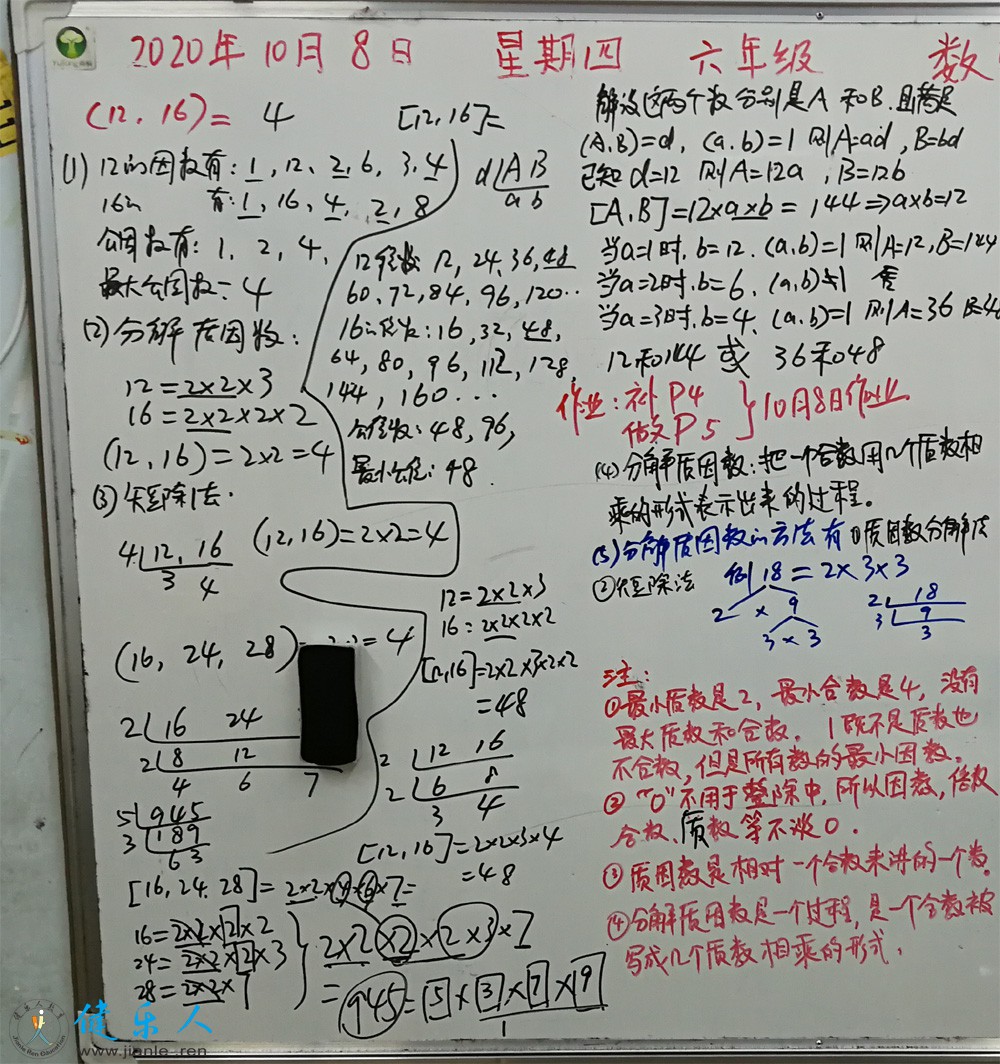 2020年10月8日 星期四 六年级 数
(12,16)= 4 [12,16]=
(1) 12的因数有:1,12,2,6,3,4
16的 有:1,16,4,2,8
公因数有:1,2,4,
最大公因数=4
(2)分解质因数:
12=2×2×3
16=2×2×2×2
(12,16)=2×2=4
(3)矢豆除法.
4 12, 16
3 4
(12,16)=2×2=4
(16, 24, 28) = 4
2 16 24
2 8 12
4 6 7
5 945
3 189
63
[16,24,28]=2×2×4×6×7=
16=2×2×2×2
24=2×2×2×3
28=2×2×7
2×2×2×2×3×7
=
945=5×3×7×9
d A B
a b
12倍数 12,24,36,48
60、72,84,96,120··
16的倍数:16,32,48,
64,80,96,112,128,
144,160···
公倍数:48,96,
最小公倍:48.
12=2×2×3
16=2×2×2×2
[12,16]=2×2×3×2×2
=48
2 12 16
2 6 8
3 4
[12,16]=2×2×3×4
=48
解设这两个数分别是A和B.且满足
(A,B)=d, (a,b)=1 则A=ad,B=bd
已知d=12 则A=12a,B=12b
[A,B]=12×a×b=144⇒a×b=12
当a=1时,b=12.(a,b)=1则A=12,B=144
当a=2时,b=6、(a,b)≠1 舍
当a=3时,b=4、(a,b)=1则A=36 B=48
12和144或 36和48
作业:补P4
做P5
10月8日作业
(4)分解质因数:把一个合数用几个质数相
乘的形式表示出来的过程。
(5)分解质因数的方法有①质因数分解法
②矢豆除法
例18=2×3×3
2 × 9
3×3
2 18
3 9
3
注:
①最小质数是2,最小合数是4,没有
最大质数和合数。1既不是质数也
不合数,但是所有数的最小因数。
②"0"不用于整除中,所以因数,倍数
合数、质数等不谈0.
③质因数是相对一个合数来讲的一个数。
④分解质因数是一个过程,是一个合数被
写成几个质数相乘的形式,
健乐人
Jianle Ren Education
www.jianle-ren